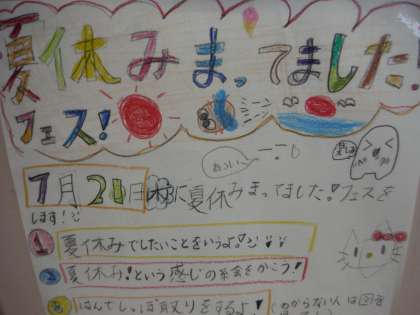 夏休みまってました!
フェス!
ミーンミーン
あつい〜
7月20日(木)に夏休みまってました!フェスを
します!
1 夏休みでしたいことをいうよ!
2 夏休み!という感じの絵をかこう!
3 はんてしっぽ取りをするよ!(わからない人は図を